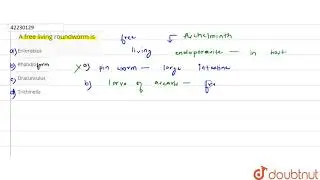 42230129
A free living roundworm is
free ↓ Aschelminth
living endoparasite – in host
a) Enterobius
b) Rhabditis form
X a) pin worm – large intestine
c) Dracunculus
b) larva of ascaris – free
d) Trichinella
doubtnut